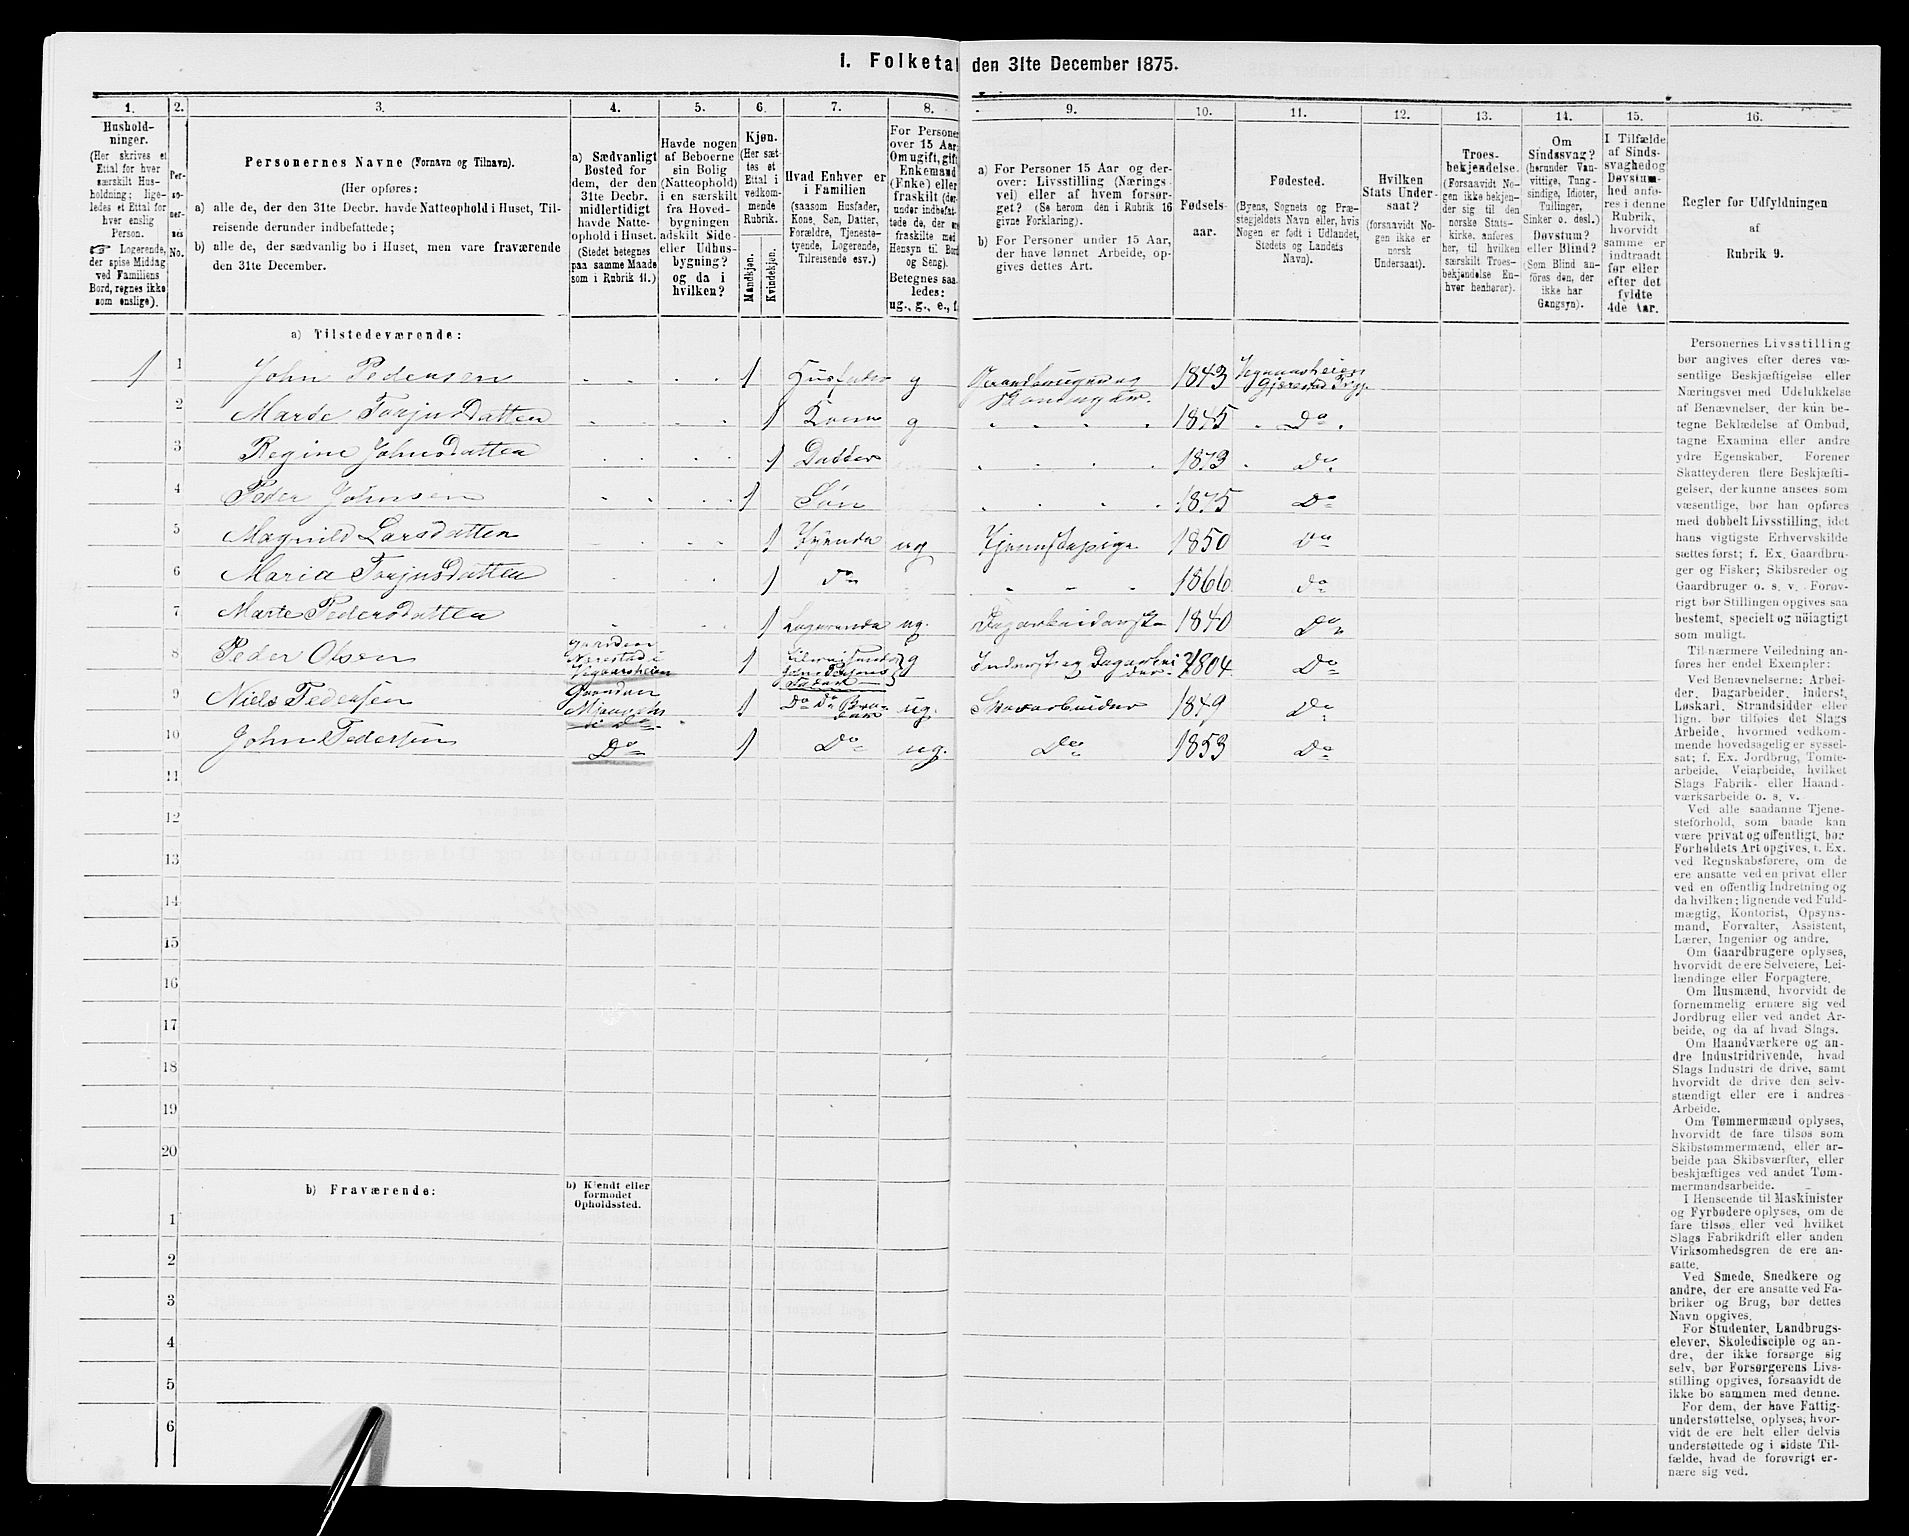 1. Folketal den 31te December 1875.
1.
Hushold-
ninger.
(Her skrives et
Ettal for hver
særskilt Hus-
holdning; lige-
ledes et Ettal for
hver enslig
Person.
☞ Logerende,
der spise Middag
ved Familiens
Bord, regnes ikke
som enslige).
2.
Per-
so-
ner-
nes
No.
3.
Personernes Navne (Fornavn og Tilnavn).
(Her opføres:
a) alle de, der den 31te Decbr. havde Natteophold i Huset, Til-
reisende derunder indbefattede;
b) alle de, der sædvanlig bo i Huset, men vare fraværende
den 31te December.
4.
a) Sædvanligt
Bosted for
dem, der den
31te Decbr.
midlertidigt
havde Natte-
ophold i Huset.
(Stedet betegnes
paa samme Maade
som i Rubrik 11.)
5.
Havde nogen
af Beboerne
sin Bolig
(Natteophold)
i en særskilt
fra Hoved-
bygningen
adskilt Side-
eller Udhus-
bygning?
og da i
hvilken?
6.
Kjøn.
(Her sæt-
tes et
Ettal i
vedkom-
mende
Rubrik.
Mandkjøn.
Kvindekjøn.
7.
Hvad Enhver er
i Familien
(saasom Husfader,
Kone, Søn, Datter,
Forældre, Tjeneste-
tyende, Logerende,
Tilreisende osv.)
8.
For Personer
over 15 Aar:
Om ugift, gift,
Enkemand
(Enke) eller
fraskilt (der-
under indbefat-
tede de, der ere
fraskilte med
Hensyn til Bord
og Seng).
Betegnes saa-
ledes:
ug., g., e., f.
9.
a) For Personer 15 Aar og der-
over: Livsstilling (Nærings-
vei) eller af hvem forsør-
get? (Se herom den i Rubrik 16
givne Forklaring).
b) For Personer under 15 Aar,
der have lønnet Arbeide, op-
gives dettes Art.
10.
Fødsels-
aar.
11.
Fødested.
(Byens, Sognets og Præ-
stegjeldets Navn eller, hvis
Nogen er født i Udlandet,
Stedets og Landets
Navn).
12.
Hvilken
Stats Under-
saat?
(forsaavidt No-
gen ikke er
norsk
Undersaat).
13.
Troes-
bekjendelse.
(Forsaavidt No-
gen ikke bekjen-
der sig til den
norske Stats-
kirke, anføres
her, til hvilken
særskilt Troes-
bekjendelse En-
hver henhører).
14.
Om
Sindssvag?
(herunder Van-
vittige, Tung-
sindige, Idioter,
Tullinger,
Sinker o. desl.)
Døvstum?
eller Blind?
(Som Blind an-
føres den, der
ikke har
Gangsyn).
15.
I Tilfælde
af Sinds-
svaghed og
Døvstum-
hed anfø-
res i denne
Rubrik,
hvorvidt
samme er
indtraadt
før eller
efter det
fyldte
4de Aar.
16.
Regler for Udfyldningen
af
Rubrik 9.
a) Tilstedeværende:
1 1 John Pedersen 1 Husfader g 1843 Gjerestad
2 Marte Torjusdatten 1 Kone g 1845 Do
3 Regine Johnsdatten 1 Datter 1873 Do
4 Peder Johnsen 1 Søn 1875 Do
5 Magnild Larsdatten 1 Tyende ug Tjenestepige 1850 Do
6 Maria Torjusdatten 1 Do 1866 Do
7 Marte Pedersdatten 1 Logerende ug. 1840 Do
8 Peder Olsen Gaarden Nærestad i Vegaarsheien 1 g 1804 Do
9 Niels Pedersen Gaarden i Do 1 Do Do Broder ug. Skovarbeider 1849 Do
10 John Pedersen Do 1 Do ug. Do 1853 Do
11
12
13
14
15
16
17
18
19
20
b) Fraværende:
b) Kjendt eller
formodet
Opholdssted.
1
2
3
4
5
6
Personernes Livsstilling
bør angives efter deres væ-
sentlige Beskjæftigelse eller
Næringsvei med Udelukkelse
af Benævnelser, der kun be-
tegne Beklædelse af Ombud,
tagne Examina eller andre
ydre Egenskaber. Forener
Skatteyderen flere Beskjæfti-
gelser, der kunne ansees som
væsentlige, bør han opføres
med dobbelt Livsstilling, idet
hans vigtigste Erhvervskilde
sættes først; f. Ex. Gaardbru-
ger og Fisker; Skibsreder og
Gaardbruger o. s. v. Forøv-
rigt bør Stillingen opgives saa
bestemt, specielt og nøiagtigt
som muligt.
Til nærmere Veiledning an-
føres her endel Exempler:
Ved Benævnelserne: Arbei-
der, Dagarbeider, Inderst,
Løskarl, Strandsidder eller
lign. bør tilføies det Slags
Arbeide, hvormed vedkom-
mende hovedsagelig er syssel-
sat; f. Ex. Jordbrug, Tomte-
arbeide, Veiarbeide, hvilket
Slags Fabrik- eller Haand-
værksarbeide o. s. v.
Ved alle saadanne Tjene-
steforhold, som baade kan
være privat og offentligt, bør
Forholdets Art opgives, f. Ex.
ved Regnskabsførere, om de
ere ansatte ved en privat eller
ved en offentlig Indretning og
da hvilken; lignende ved Fuld-
mægtig, Kontorist, Opsyns-
mand, Forvalter, Assistent,
Lærer, Ingeniør og andre.
Om Gaardbrugere oplyses,
hvorvidt de ere Selveiere, Lei-
lændinge eller Forpagtere.
Om Husmænd, hvorvidt de
fornemmelig ernære sig ved
Jordbrug eller ved andet Ar-
beide, og da af hvad Slags.
Om Haandværkere og an-
dre Industridrivende, hvad
Slags Industri de drive, samt
hvorvidt de drive den selv-
stændigt eller ere i andres
Arbeide.
Om Tømmermænd oplyses,
hvorvidt de fare tilsøs som
Skibstømmermænd, eller ar-
beide paa Skibsværfter, eller
beskjæftiges ved andet Tøm-
mermandsarbeide.
I Henseende til Maskinister
og Fyrbødere oplyses, om de
fare tilsøs eller ved hvilket
Slags Fabrikdrift eller anden
Virksomhedsgren de ere an-
satte.
Ved Smede, Snedkere og
andre, der ere ansatte ved Fa-
briker og Brug, bør dettes
Navn opgives.
For Studenter, Landbrugs-
elever, Skoledisciple og an-
dre, der ikke forsørge sig
selv, bør Forsørgerens Livs-
stilling opgives, forsaavidt de
ikke bo sammen med denne.
For dem, der have Fattig-
understøttelse, oplyses, hvor-
vidt de ere helt eller delvis
understøttede og i sidste Til-
fælde, hvad de forøvrigt er-
nære sig ved.